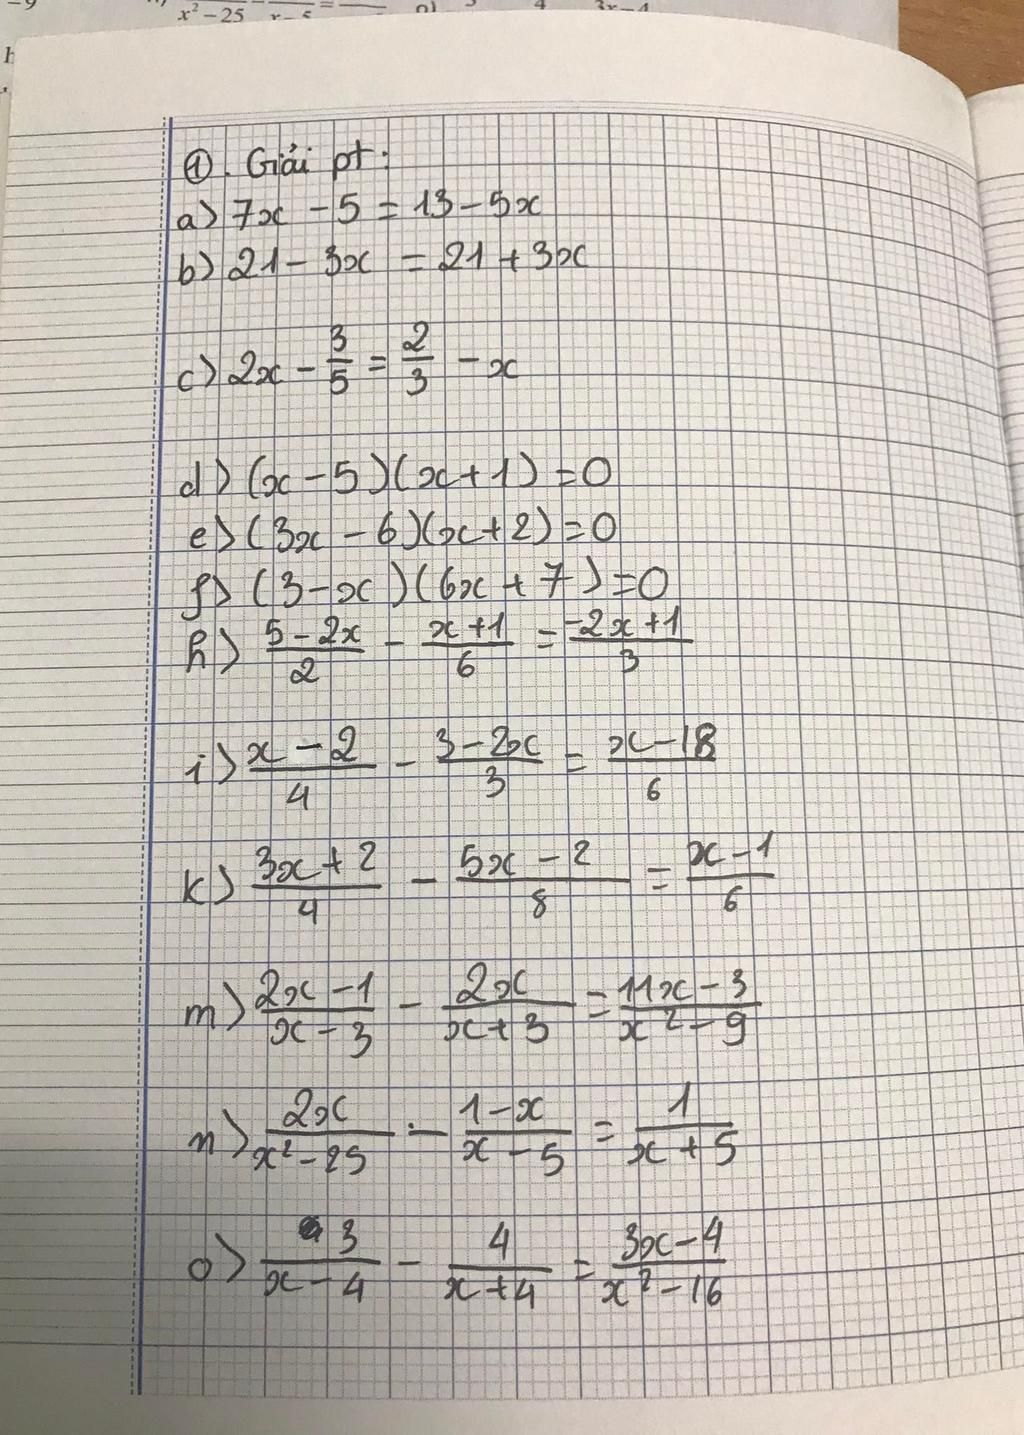 -9
x² - 25
x - 5
=
o)
4
3x - 4
①. Giải pt:
a) 7x - 5 = 13 - 5x
b) 21 - 3x = 21 + 3x
c) 2x - 3/5 = 2/3 - x
d) (x - 5)(x + 1) = 0
e) (3x - 6)(x + 2) = 0
f) (3 - x)(6x + 7) = 0
h) (5 - 2x)/2 - (x + 1)/6 = (-2x + 1)/3
i) (x - 2)/4 - (3 - 2x)/3 = (x - 18)/6
k) (3x + 2)/4 - (5x - 2)/8 = (x - 1)/6
m) (2x - 1)/(x - 3) - 2x/(x + 3) = (11x - 3)/(x² - 9)
n) 2x/(x² - 25) - (1 - x)/(x - 5) = 1/(x + 5)
o) 3/(x - 4) - 4/(x + 4) = (3x - 4)/(x² - 16)